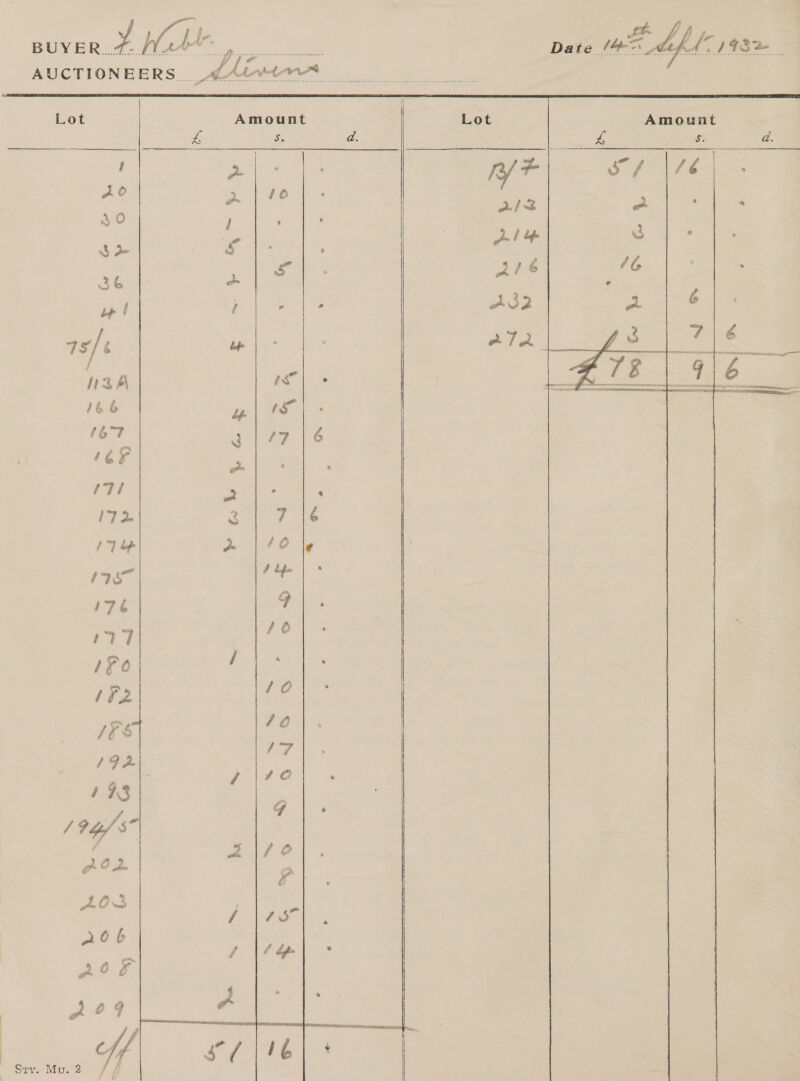 BUYER F. Webb. Date 14th Sept. 1932
AUCTIONEERS Stevens
Lot Amount Lot Amount
£ s. d. £ s. d.
1 2 . .
20 2 10 .
30 1 . .
32 5 . .
36 2 5 .
41 1 . .
75/6 4 . .
113A 15 .
166 4 15 .
167 3 17 6
168 2 . .
171 2 . .
172 3 7 6
174 2 10 .
175 14 .
176 9 .
177 10 .
180 1 . .
182 10 .
185 10 .
192 17 .
193 1 10 .
194/5 9 .
202 2 10 .
203 8 .
206 1 15 .
208 1 14 .
209 2 . .
c/f 51 16 .
B/F 51 16 .
213 2 . .
214 3 . .
216 16 . .
232 2 6 .
272 3 7 6
£78 9 6
Sty. Mu. 2